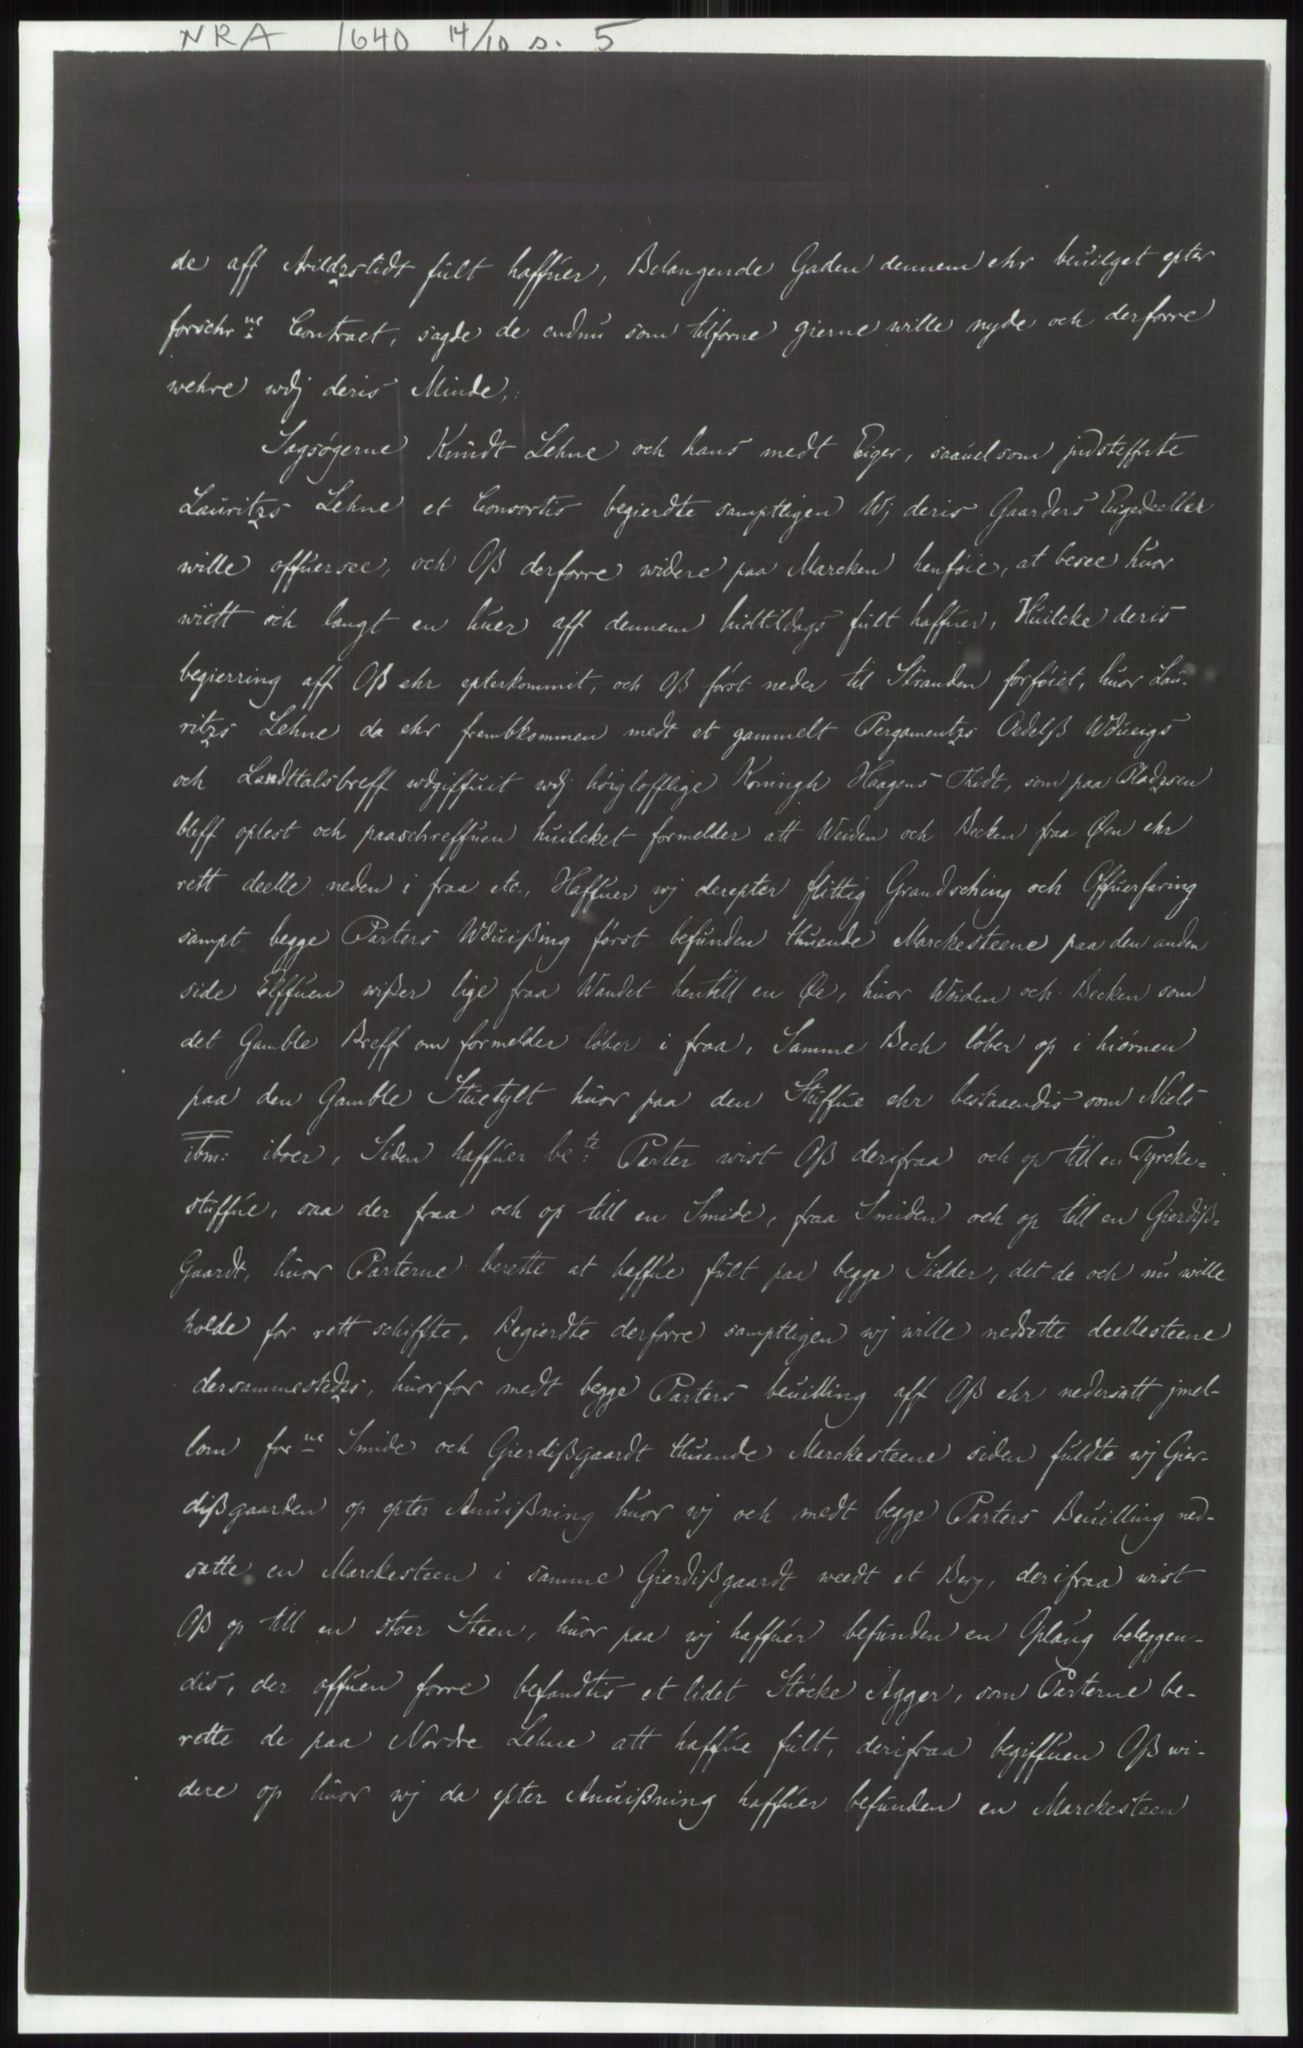 NRA 1640 14/10 s. 5
de aff Arildzstidt fult haffuer, Belangende Gaden dennem ehr beuilget epter
forschrne Contract, sagde de endnu som tilforne gierne wille nyde och derforre
wehre wdj deris Minde,
Sagsøgerne Knudt Lehne och hans medt Eiger, saauelsom jndsteffnte
Lauritzs Lehne et Consortis begierdte samptligen Wj deris Gaarders Eigedeeller
wille offuersee, och Oß derforre widere paa Marcken henføie, at besee huor
wiett och langt en huer aff dennem hidtildags fult haffuer, Huilcke deris
begierring aff Oß ehr epterkommit, och Oß først neder til Stranden forføiet, huor Lau-
ritzs Lehne da ehr frembkommen medt et gammelt Pergamentzs Oedelß Wduisigs
och Landttalsbreff wdgiffuit wdj høiglofflige Koningh Haagens Thidt, som paa Pladzsen
bleff oplest och paaschreffuen huilcket formelder att Weiden och Becken fraa Øen ehr
rett deelle neden i fraa etc., Haffuer wj derepter flittig Grandsching och Offuerfaring
sampt begge Parters Wduißing først befunden thuende Marckesteene paa den anden
side Elffuen wißer lige fraa Wandet hentill en Øe, huor Weiden och Becken som
det Gamble Breff om formelder løber i fraa, Samme Bech løber op i hiørnen
paa den Gamble Stuetylt huor paa den Stuffue ehr bestaaendis som Niels
ibm: iboer, Siden haffuer bete Parter wist Oß derifraa och op till en Tyrcke-
stuffue, saa der fraa och op till en Smide, fraa Smiden och op till en Gierdiß-
Gaardt, huor Parterne berette at haffue fult paa begge Sidder, det de och nu wille
holde for rett schiffte, Begierdte derforre samptligen wj wille nedsette deellesteene
dersammestedzs, huorfor medt begge Parters beuilling aff Oß ehr nedersatt jmel-
lom forne Smide och Gierdißgaardt thuende Marckesteene siden fuldte wj Gier-
dißgaarden op epter Anuißning huor wj och medt begge Parters Beuilling ned-
satte en Marckesteen i samme Gierdißgaardt weedt et Berg, derifraa wist
Oß op till en stoer Steen, huor paa wj haffuer befunden en Oplaug beleggen-
dis, der offuen forre befandtis et lidet Støcke Agger, som Parterne be-
rette de paa Nordre Lehne att haffue fult, derifraa begiffuen Oß wi-
dere op huor wj da epter Anuißning haffuer befunden en Marckesteen